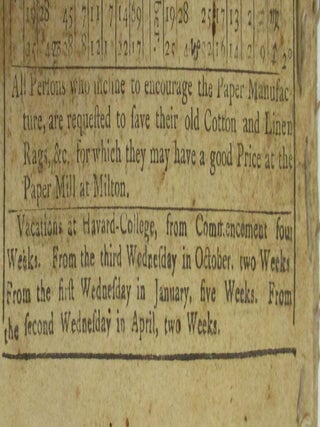 19 28 45 7 11 7 14 89 19 28 25 17 13 2
25 8 12 22 17 25 16 14 2
All Persons who incline to encourage the Paper Manufac-
ture, are requested to save their old Cotton and Linen
Rags, &c. for which they may have a good Price at the
Paper Mill at Milton.
Vacations at Havard-College, from Commencement four
Weeks. From the third Wednesday in October, two Weeks
From the first Wednesday in January, five Weeks. From
the second Wednesday in April, two Weeks.